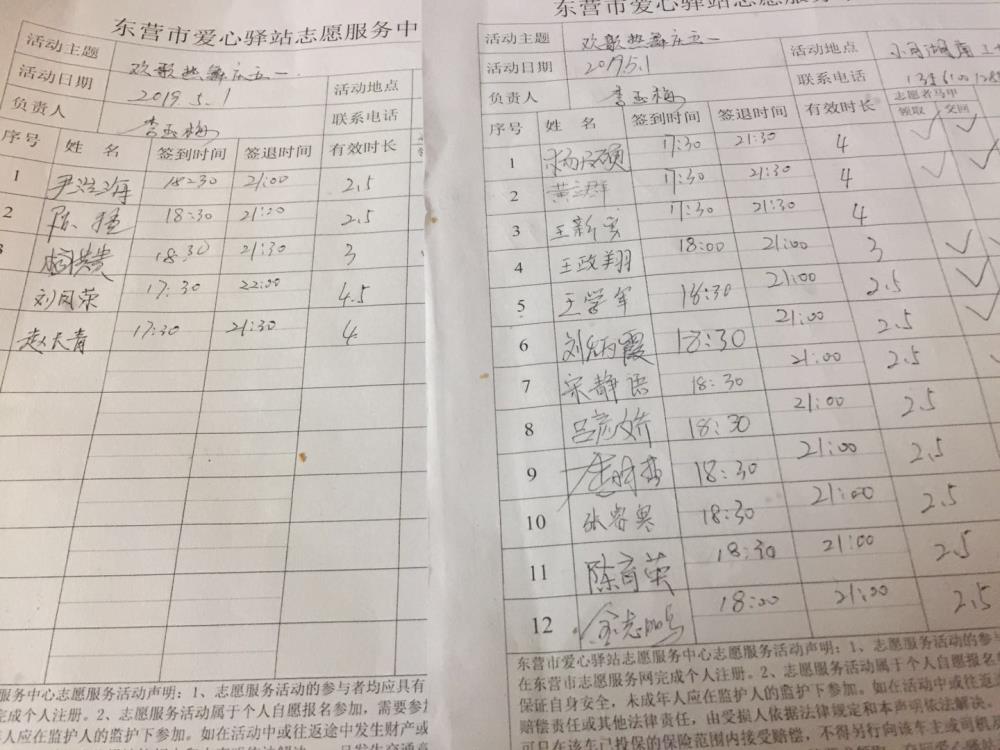 东营市爱心驿站志愿服务中
活动主题 欢歌热舞庆五一
活动日期 2019.5.1 活动地点
负责人 李玉梅 联系电话
序号 姓名 签到时间 签退时间 有效时长
1 18:30 21:00 2.5
2 18:30 21:00 2.5
18:30 21:30 3
刘凤荣 17:30 22:00 4.5
赵天青 17:30 21:30 4
服务中心志愿服务活动声明：1、志愿服务活动的参与者均应具有
完成个人注册。2、志愿服务活动属于个人自愿报名参加，需要参加
人应在监护人的监护下参加。如在活动中或往返途中发生财产或
东营市爱心驿站志愿服务
活动主题 欢歌热舞庆五一 活动地点
活动日期 2019.5.1 联系电话
负责人 李玉梅 志愿者马甲
序号 姓名 签到时间 签退时间 有效时长 领取 交回
1 17:30 21:30 4
2 17:30 21:30 4
3 王新云 17:30 21:30 4
4 王政翔 18:00 21:00 3
5 王学军 18:30 21:00 2.5
6 刘炳霞 18:30 21:00 2.5
7 宋静语 18:30 21:00 2.5
8 吕彦娇 18:30 21:00 2.5
9 18:30 21:00 2.5
10 18:30 21:00 2.5
11 陈育荣 18:30 21:00 2.5
12 18:00 21:00 2.5
东营市爱心驿站志愿服务中心志愿服务活动声明：1、志愿服务活动的参
在东营市志愿服务网完成个人注册。2、志愿服务活动属于个人自愿报名
保证自身安全，未成年人应在监护人的监护下参加。如在活动中或往返途
赔偿责任或其他法律责任，由受损人依据法律规定和本声明依法解决。
可只在该车已投保的保险范围内接受赔偿，不得另行向该车主或司机